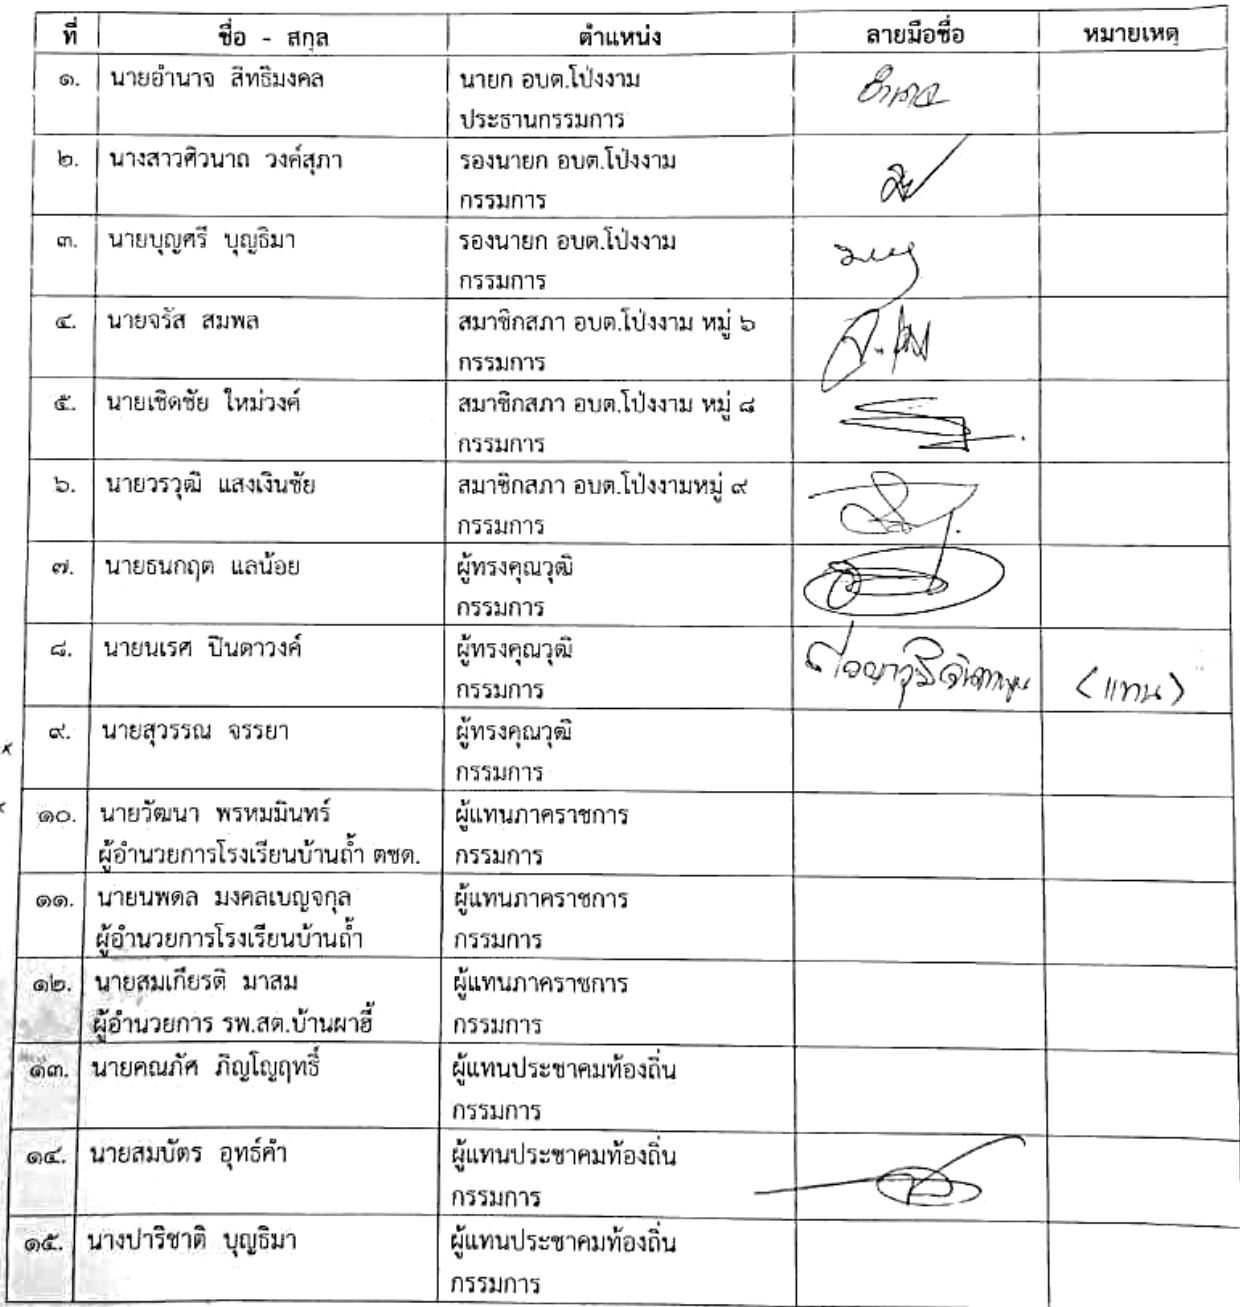 ที่ ชื่อ - สกุล ตำแหน่ง ลายมือชื่อ หมายเหตุ
๑. นายอำนาจ สิทธิมงคล นายก อบต.โป่งงาม
ประธานกรรมการ
๒. นางสาวศิวนาถ วงค์สุภา รองนายก อบต.โป่งงาม
กรรมการ
๓. นายบุญศรี บุญธิมา รองนายก อบต.โป่งงาม
กรรมการ
๔. นายจรัส สมพล สมาชิกสภา อบต.โป่งงาม หมู่ ๖
กรรมการ
๕. นายเชิดชัย ใหม่วงค์ สมาชิกสภา อบต.โป่งงาม หมู่ ๘
กรรมการ
๖. นายวรวุฒิ แสงเงินชัย สมาชิกสภา อบต.โป่งงามหมู่ ๙
กรรมการ
๗. นายธนกฤต แลน้อย ผู้ทรงคุณวุฒิ
กรรมการ
๘. นายนเรศ ปินตาวงค์ ผู้ทรงคุณวุฒิ (แทน)
กรรมการ
๙. นายสุวรรณ จรรยา ผู้ทรงคุณวุฒิ
กรรมการ
๑๐. นายวัฒนา พรหมมินทร์ ผู้แทนภาคราชการ
ผู้อำนวยการโรงเรียนบ้านถ้ำ ตชด. กรรมการ
๑๑. นายนพดล มงคลเบญจกุล ผู้แทนภาคราชการ
ผู้อำนวยการโรงเรียนบ้านถ้ำ กรรมการ
๑๒. นายสมเกียรติ มาสม ผู้แทนภาคราชการ
ผู้อำนวยการ รพ.สต.บ้านผาฮี้ กรรมการ
๑๓. นายคณภัศ ภิญโญฤทธิ์ ผู้แทนประชาคมท้องถิ่น
กรรมการ
๑๔. นายสมบัตร อุทธ์คำ ผู้แทนประชาคมท้องถิ่น
กรรมการ
๑๕. นางปาริชาติ บุญธิมา ผู้แทนประชาคมท้องถิ่น
กรรมการ